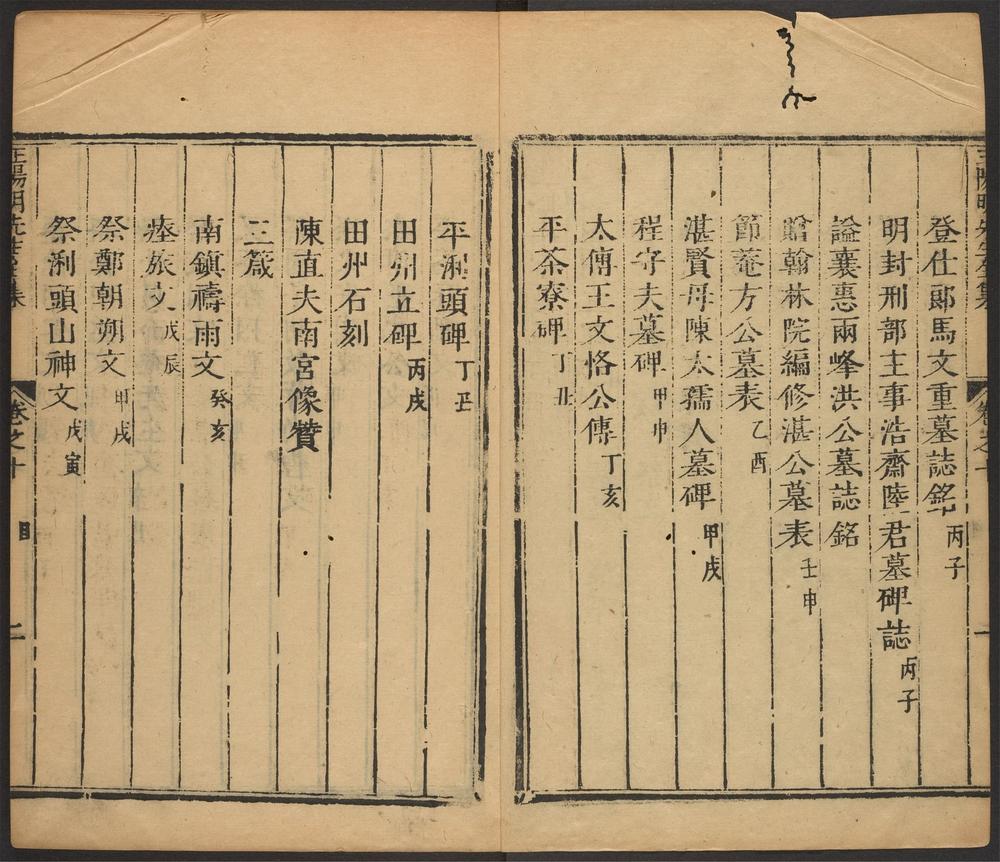 登仕郎馬文重墓誌銘 丙子
明封刑部主事浩齋陸君墓碑誌 丙子
謚襄惠兩峰洪公墓誌銘
贈翰林院編修湛公墓表 壬申
節菴方公墓表 乙酉
湛賢母陳太孺人墓碑 甲戌
程守夫墓碑 甲申
太傅王文恪公傳 丁亥
平茶寮碑 丁丑
平浰頭碑 丁丑
田州立碑 丙戌
田州石刻
陳直夫南宮像贊
三箴
南鎮禱雨文 癸亥
瘞旅文 戊辰
祭鄭朝朔文 甲戌
祭浰頭山神文 戊寅
王陽明先生集 卷之十 目 二